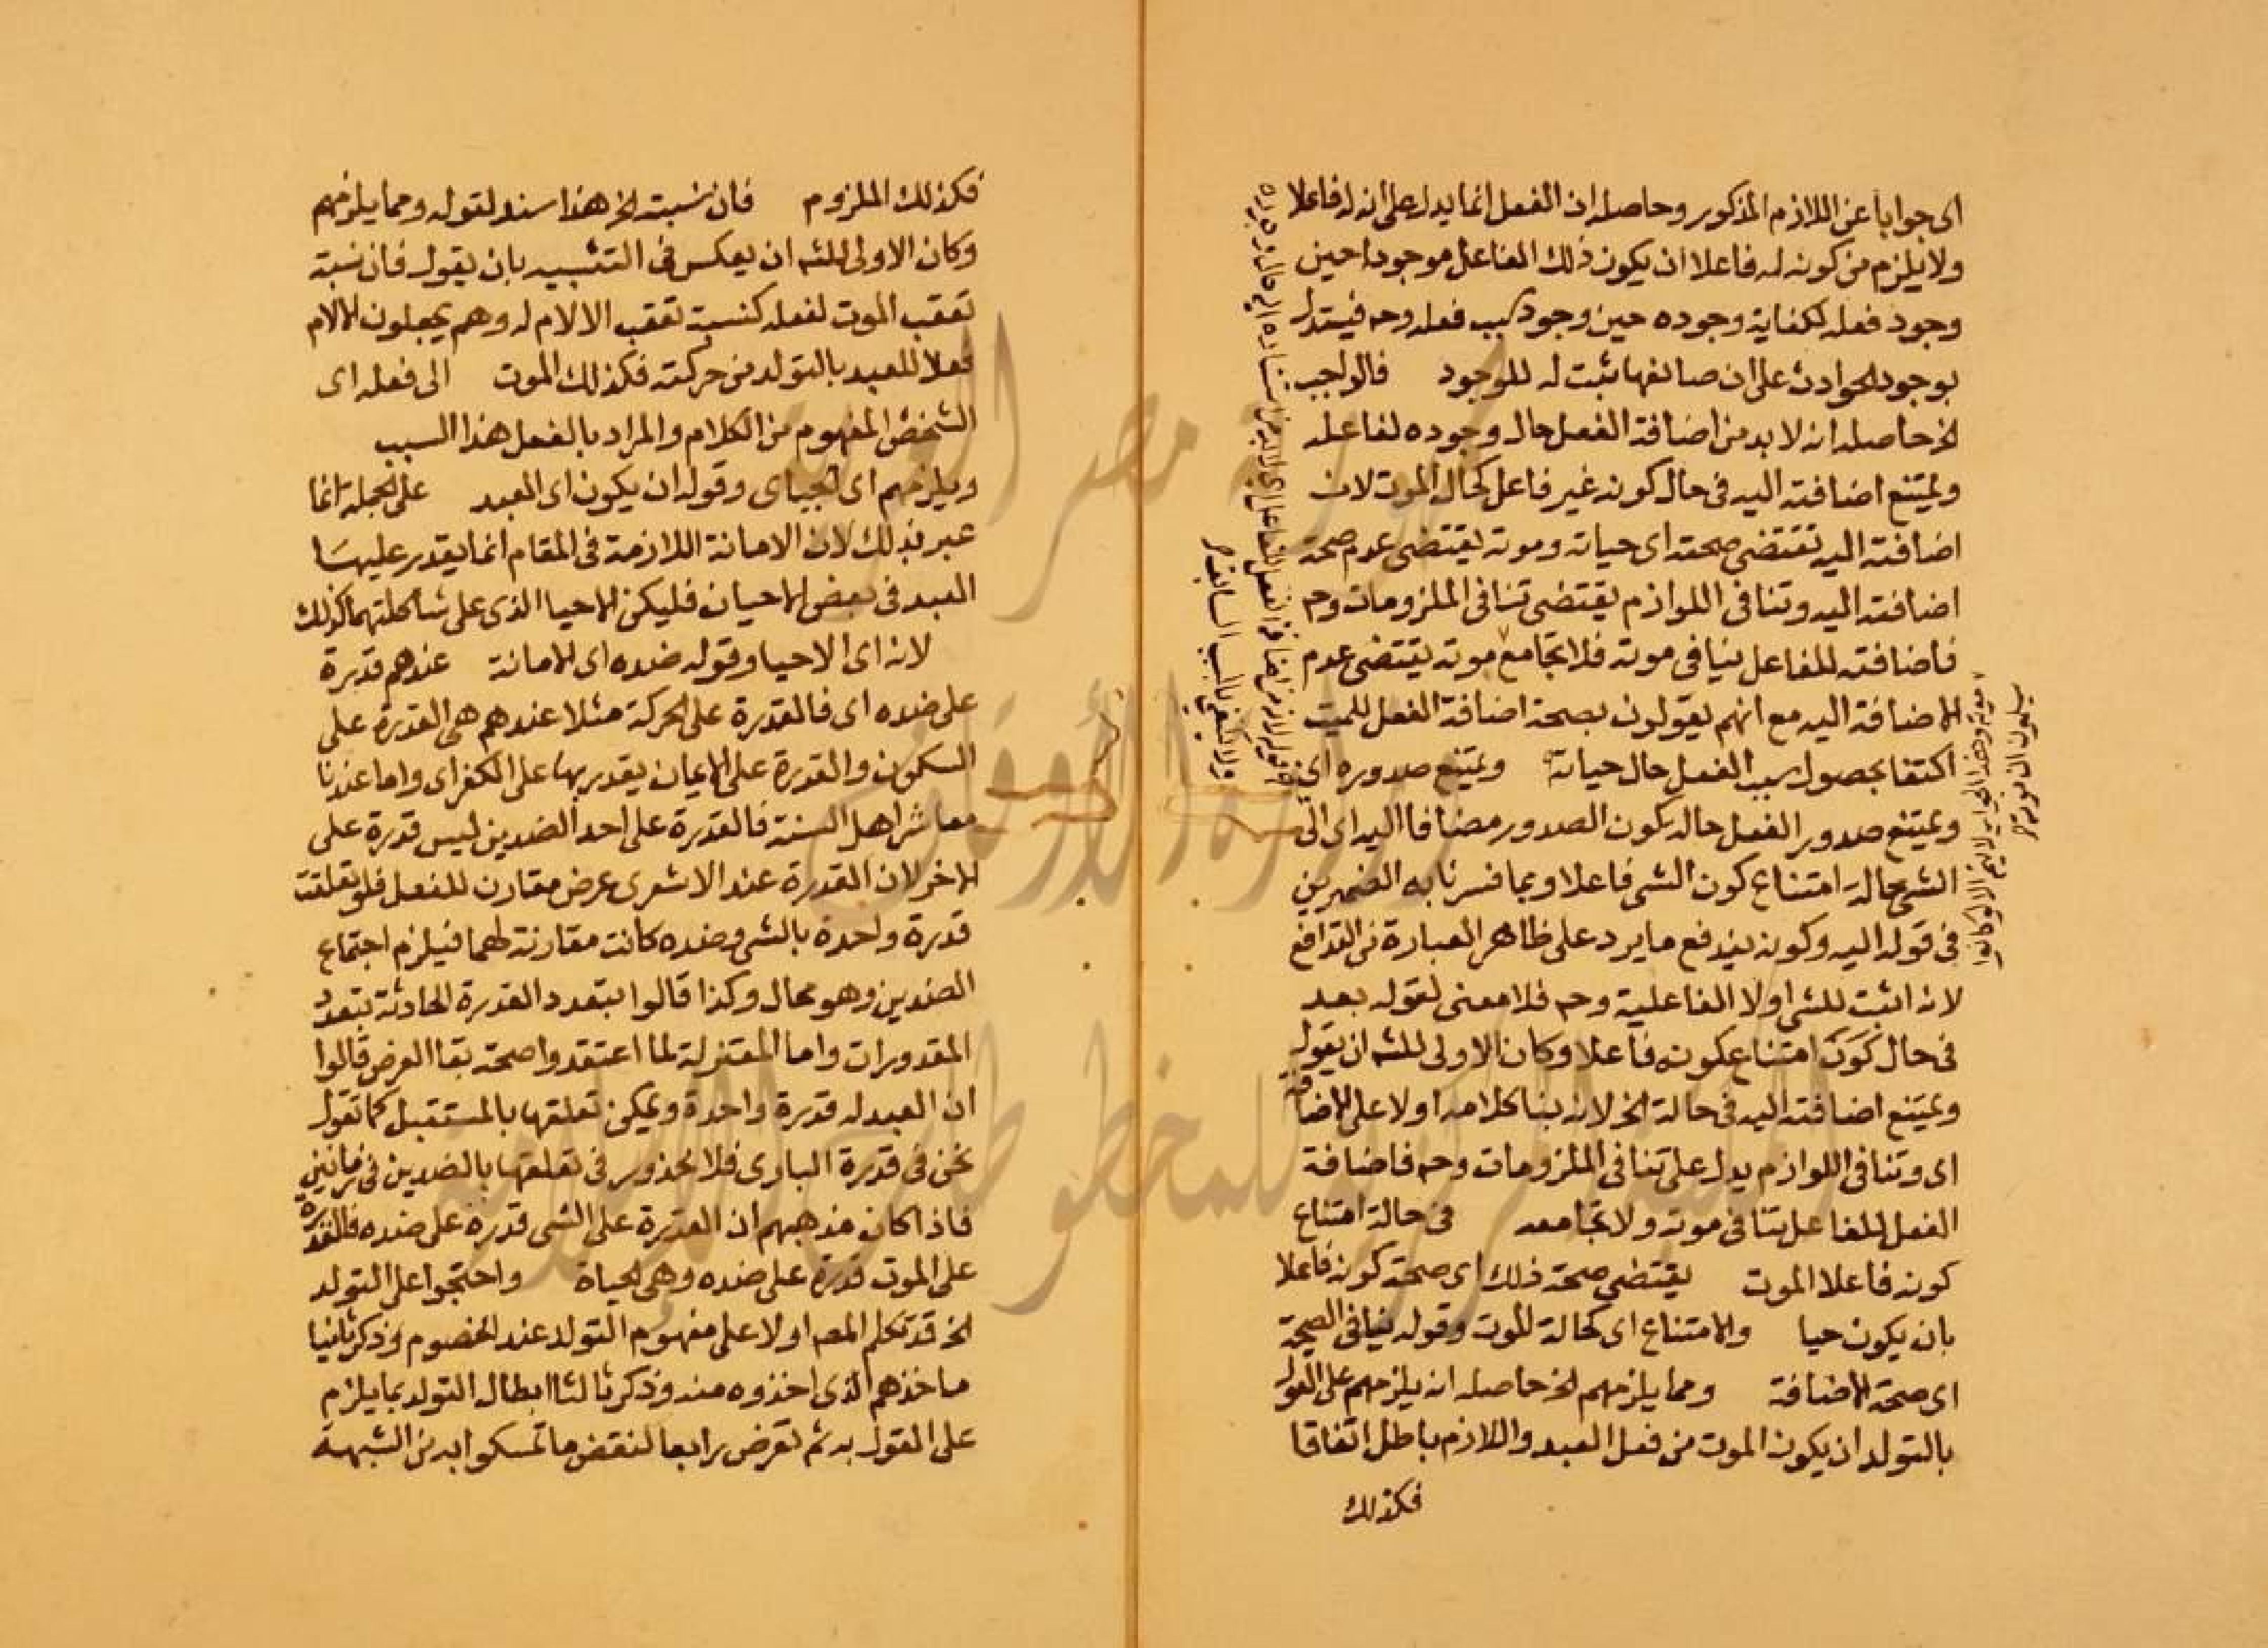 اى جوابا عن اللازم المذكور وحاصله ان الفعل انما يدل على ان له فاعلا
ولا يلزم من كونه له فاعلا ان يكون ذلك الفاعل موجودا حين
وجود فعله لكفاية وجوده حين وجود سبب فعله وح فيستدل
بوجود الحوادث على ان صانعها ثبت له الوجود فالواجب
الخ حاصله انه لا بد من اضافة الفعل حال وجوده لفاعله
ويمتنع اضافته اليه فى حال كونه غير فاعل كحال الموت لان
اضافته اليه تقتضى صحته اى حياته وموته يقتضى عدم صحة
اضافته اليه وتنافى اللوازم يقتضى تنافى الملزومات وح
فاضافته للفاعل ينافى موته فلا تجامع موته يقتضى عدم
الاضافة اليه مع انهم يقولون بصحة اضافة الفعل للميت
اكتفا بحصول سبب الفعل حال حياته ويمتنع صدوره اى
ويمتنع صدور الفعل حال كون الصدور مضافا اليه اى الى
الشى حالة امتناع كون الشى فاعلا وبما فسرنا به الضميرين
فى قوله اليه وكونه يندفع ما يرد على ظاهر العبارة من التدافع
لانه اثبت للشى اولا الفاعلية وح فلا معنى لقوله بعد
فى حال كون امتناع كونه فاعلا وكان الاولى للشه ان يقول
ويمتنع اضافته اليه فى حالة الخ لانه بنا كلامه اولا على الاضافة
اى وتنافى اللوازم يدل على تنافى الملزومات وح فاضافة
الفعل للفاعل تنافى موته ولا تجامعه فى حالة امتناع
كونه فاعلا الموت يقتضى صحة ذلك اى صحة كونه فاعلا
بان يكون حيا والامتناع اى كحالة الموت وقوله ينافى الصحة
اى صحة الاضافة ومما يلزمهم الخ حاصله انه يلزمهم على القول
بالتولد ان يكون الموت من فعل العبد واللازم باطل اتفاقا
فكذلك
فكذلك الملزوم فان نسبته الخ هذا سند لقوله ومما يلزمهم
وكان الاولى للشه ان يعكس فى التشبيه بان يقول فان نسبة
تعقب الموت لفعله كنسبة تعقب الالام له وهم يجعلون الالام
فعلا للعبد بالتولد من حركته فكذلك الموت الى فعله اى
الشخص المفهوم من الكلام والمراد بالفعل هذا السبب
ويلزمهم اى الجبياى وقوله ان يكون اى العبد على الجملة انما
عبر بذلك لان الاماتة اللازمة فى المقام انما يقدر عليها
العبد فى بعض الاحيان فليكن الاحيا الذى على شاكلتها كذلك
لانه اى الاحيا وقوله ضده اى الاماتة عندهم قدرة
على ضده اى فالقدرة على الحركة مثلا عندهم هى القدرة على
السكون والقدرة على الايمان يقدر بها على الكفر اى واما عندنا
معاشر اهل السنة فالقدرة على احد الضدين ليس قدرة على
الاخر لان القدرة عند الاشعرى عرض مقارن للفعل فلو تعلقت
قدرة واحدة بالشى وضده كانت مقارنة لهما فيلزم اجتماع
الضدين وهو محال وكذا قالوا بتعدد القدرة الحادثة بتعدد
المقدورات واما المعتزلة لما اعتقدوا صحة بقا العرض قالوا
ان العبد له قدرة واحدة ويمكن تعلقها بالمستقبل كما تقول
نحن فى قدرة البارى فلا محذور فى تعلقها بالضدين فى زمانين
فاذا كان مذهبهم ان القدرة على الشى قدرة على ضده فالقدرة
على الموت قدرة على ضده وهى الحياة واحتجوا على التولد
الخ قد تكلم المصه اولا على مفهوم التولد عند الخصوم وذكر ثانيا
ماخذهم الذى اخذوه منه وذكر ثالثا ابطال التولد بما يلزم
على القول به ثم تعرض رابعا لنقض ما تمسكوا به من الشبهة